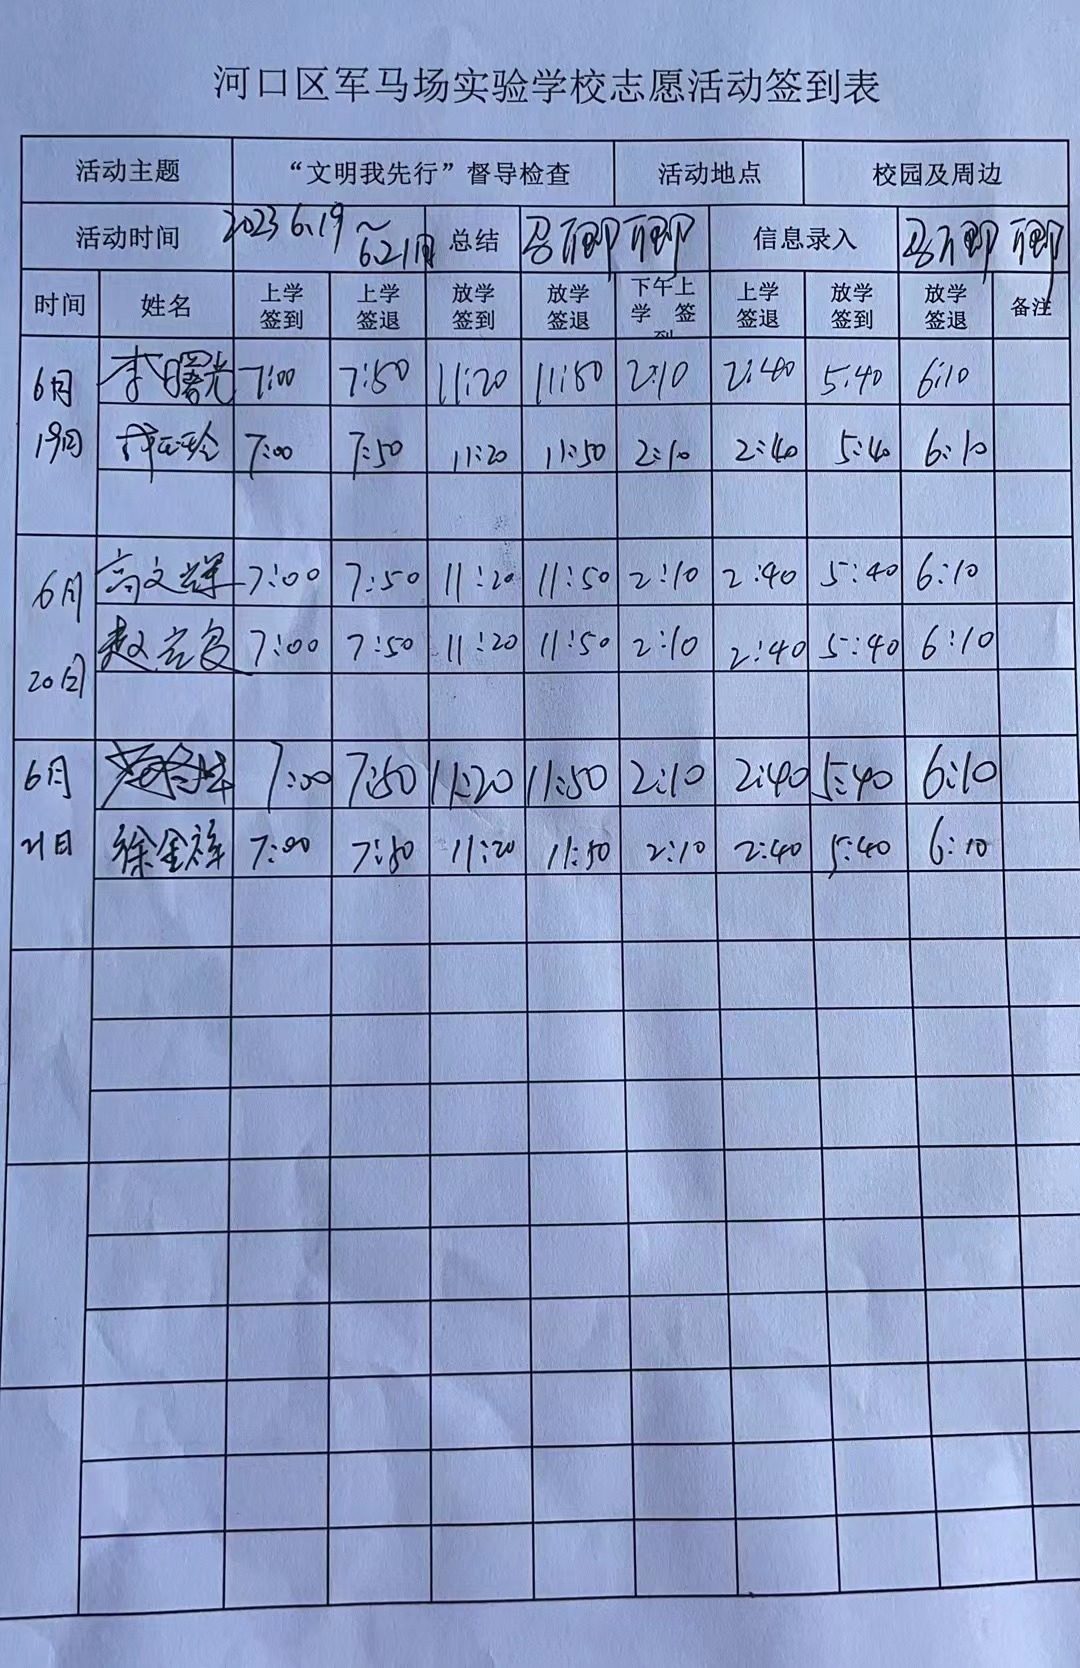 河口区军马场实验学校志愿活动签到表
活动主题 “文明我先行”督导检查 活动地点 校园及周边
活动时间 2023 6.19～6.21日 总结 信息录入
时间 姓名 上学签到 上学签退 放学签到 放学签退 下午上学 签到 上学签退 放学签到 放学签退 备注
6月19日 李曙光 7:00 7:50 11:20 11:50 2:10 2:40 5:40 6:10
7:00 7:50 11:20 11:50 2:10 2:40 5:40 6:10
6月20日 高文辉 7:00 7:50 11:20 11:50 2:10 2:40 5:40 6:10
7:00 7:50 11:20 11:50 2:10 2:40 5:40 6:10
6月21日 7:00 7:50 11:20 11:50 2:10 2:40 5:40 6:10
徐金祥 7:00 7:50 11:20 11:50 2:10 2:40 5:40 6:10